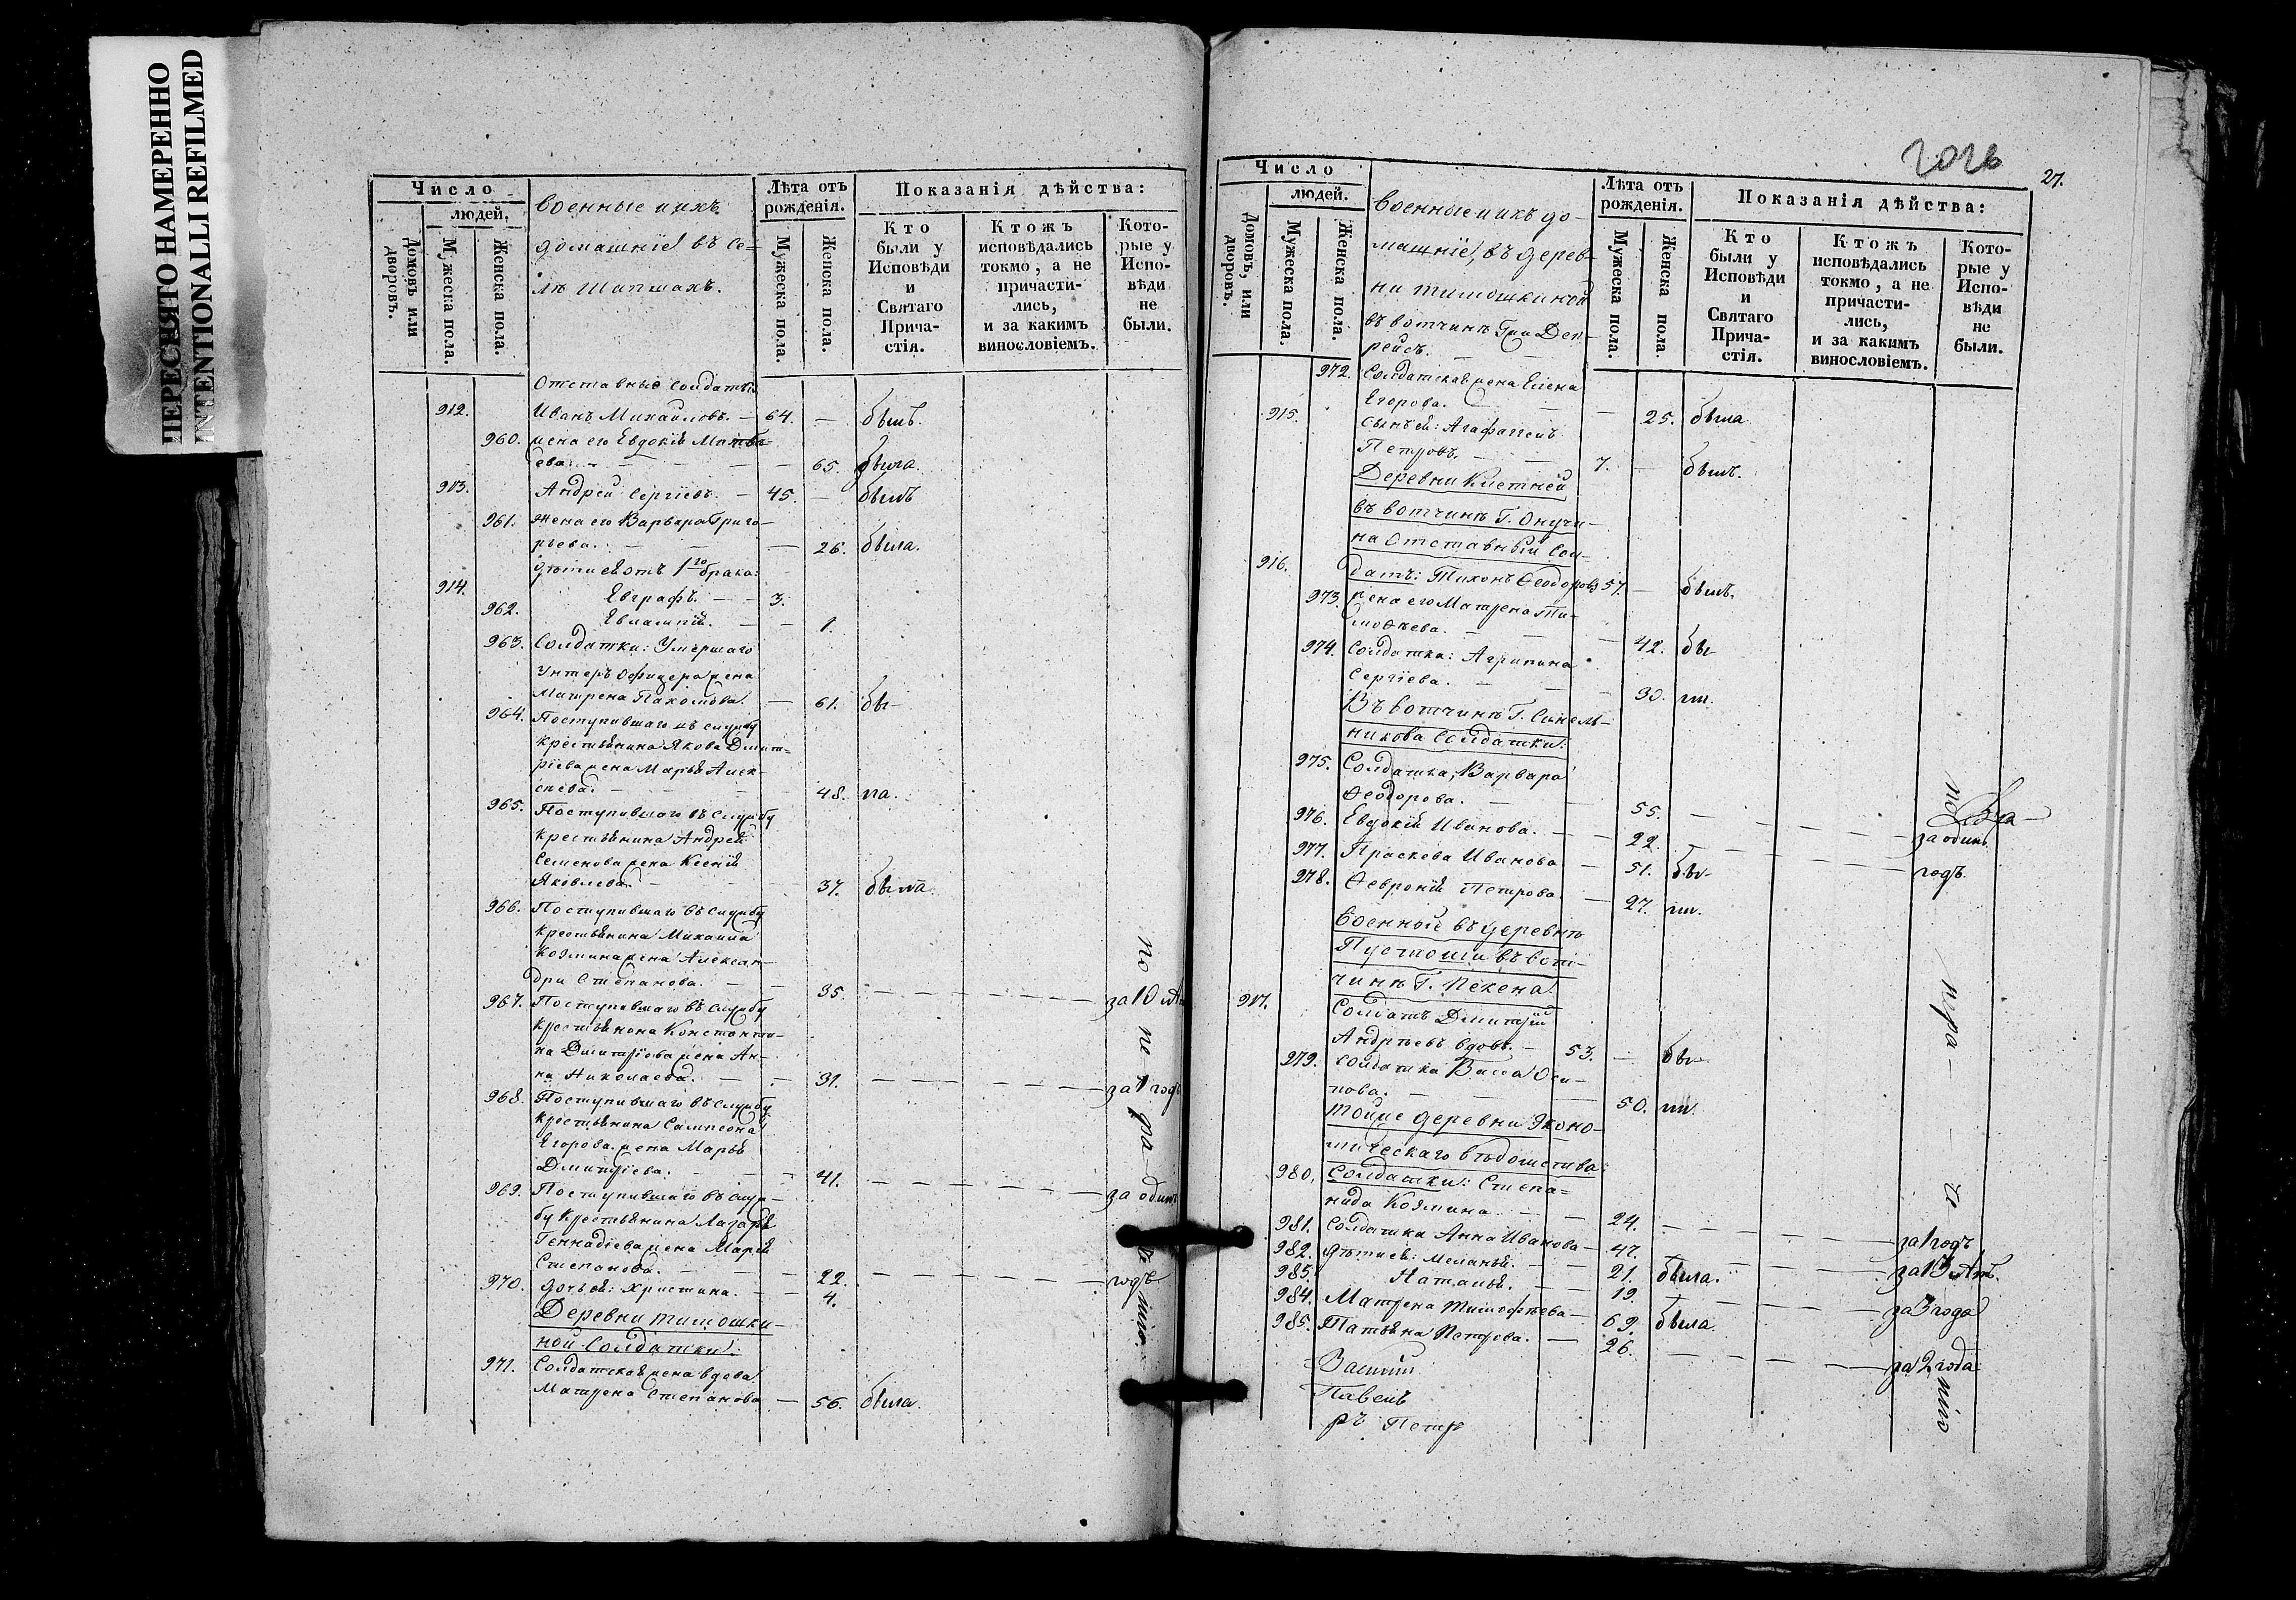 ПЕРЕСНЯТО НАМЕРЕННО
INTENTIONALLI REFILMED
Число
людей.
Домовъ или дворовъ.
Мужеска пола.
Женска пола.
Военные и ихъ
домашніе въ се=
лѣ Шапшахъ.
Лѣта отъ рожденія.
Мужеска пола.
Женска пола.
Показанія дѣйства:
Кто были у Исповѣди и Святаго Прича-стія.
Ктожъ исповѣдались токмо, а не причасти-лись, и за какимъ винословіемъ.
Кото-рые у Испо-вѣди не были.
Отставные солдаты
912. Иванъ Михайловъ. — 64. — былъ.
960. жена его Евдокія Матвѣ=
ева. — — — — 65. была.
913. Андрей Сергіевъ. — 45. — былъ
961. Жена его Варвара Григо—
рьева. — — — 26. была.
дѣти ея отъ 1го брака:
914. Евграфъ. — — 3.
962. Евлампія. — — 1.
963. Солдатки: Умершаго
Унтеръ Офицера жена
Матрена Пахомова. — 61. бы—
964. Поступившаго въ службу
крестьянина Якова Дмит=
ріева жена Марья Алек-
сѣева. — — — 48. ла.
965. Поступившаго въ службу
крестьянина Андрея
Семенова жена Ксенія
Яковлева. — — — 37. была
966. Поступившаго въ службу
крестьянина Михаила
Козмина жена Алексан—
дра Степанова. — — 35. — — — — — за 10 лѣт
967. Поступившаго въ службу
крестьянина Константи-
на Дмитріева жена Ан-
на Николаева. — — 31. — — — — — за 1 годъ
968. Поступившаго въ службу
крестьянина Сампсона
Егорова жена Марья
Дмитріева. — — — 41. — — — — — за одинъ
969. Поступившаго въ служ-
бу крестьянина Лазаря
Геннадіева жена Марья
Степанова. — — — 22. — — — — — годъ
970. дочь ея: Христина. — — 4.
Деревни Тимошки—
ной Солдатки:
971. Солдатская жена вдова
Матрена Степанова — 56. была.
по не ра
нію.
27.
Число
людей.
Домовъ, или дворовъ.
Мужеска пола.
Женска пола.
Военные и ихъ до—
машніе, въ дерев-
ни Тимошкиной
въ вотчинѣ
Лѣта отъ рожденія.
Мужеска пола.
Женска пола.
Показанія дѣйства:
Кто были у Исповѣди и Святаго Прича-стія.
Ктожъ исповѣдались токмо, а не причасти-лись, и за какимъ винословіемъ.
Кото-рые у Испо-вѣди не были.
972. Солдатская жена Елена
Егорова. — — — 25. была
915. сынъ ея: Агафангелъ
Петровъ. — — 7. — былъ.
Деревни Клетней
въ вотчинѣ Г. Онучи—
на Отставный Сол—
916. датъ: Тихонъ Ѳеодоровъ 57. — былъ.
973. жена его Матрена Ти—
моѳеева. — — — 42. бы-
974. Солдатка: Агрипина
Сергіева. — — — 30. ли.
Въ вотчинѣ Г. Синель—
никова Солдатки:
975. Солдатка, Варвара
Ѳеодорова. — — 55. — — — — — за одинъ
976. Евдокія Иванова. — — 22. — — — — — годъ.
977. Праскева Иванова — 51. бы-
978. Ѳевронія Петрова. — 27. ли.
Военной въ деревнѣ
Пустоши въ вот—
чинѣ Г. Пекена.
917. Солдатъ Дмитрій
Андреевъ вдовъ. — 53. — бы—
979. солдатка Васса Оси—
пова. — — — 50. ли.
Тойже деревни Эконо—
мическаго вѣдомства:
980. Солдатки: Степа=
нида Козмина — — 24. — — — — за 1 годъ
981. солдатка Анна Иванова — 47. — — — — за 13 лѣтъ.
982. дѣти ея: Меланья. — — 21. была.
983. Наталья. — — 19. — — — — за 3 года
984. Матрена Тимофеева — 69. была.
985. Татьяна Петрова. — 26. — — — — за 2 года
по
нера—
нію
Василій
Павелъ
ръ Петр